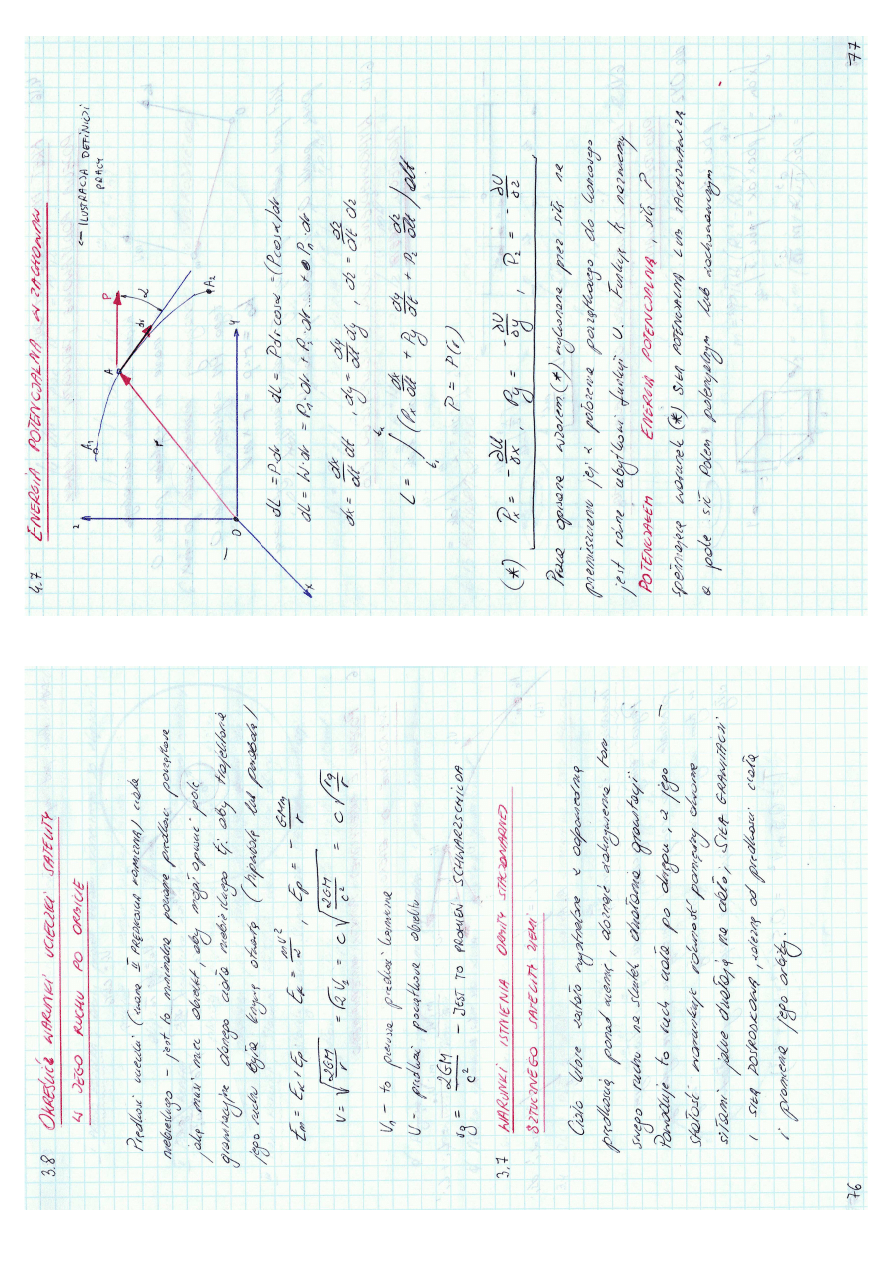 3.8 OKREŚLIĆ WARUNKI UCIECZKI SATELITY
W JEGO RUCHU PO ORBICIE
Prędkość ucieczki (zwana II PRĘDKOŚCIĄ KOSMICZNĄ) ciała
niebieskiego – jest to minimalna prędkość początkowa
jaką musi mieć obiekt, aby mógł opuścić pole
grawitacyjne danego ciała niebieskiego tj. aby
jego ruchu była krzywą otwartą (hiperbolą lub parabolą)
Em = Ek + Ep Ek = mv²/2 , Ep = - GMm/r
V = √(2GM/r) = √2 V₁ = c √(2GM/c²/r) = c √(rg/r)
– to pierwsza prędkość kosmiczna
V – prędkość początkowa obiektu
rg = 2GM/c² – JEST TO PROMIEŃ SCHWARZSCHILDA
3.7 WARUNKI ISTNIENIA ORBITY STACJONARNEJ
SZTUCZNEGO SATELITY ZIEMI
Ciało które zostało wystrzelone z odpowiednią
prędkością ponad ziemię, doznaje zakrzywienia toru
swego ruchu na skutek działania grawitacji
Powoduje to ruch ciała po okręgu, a jego –
stałość warunkuje równość pomiędzy dwoma
siłami jakie działają na ciało, SIŁĄ GRAWITACJI
i SIŁĄ DOŚRODKOWĄ, zależną od prędkości ciała
i promienia jego orbity.
76
4.7 ENERGIA POTENCJALNA W ZACHOWAW
← ILUSTRACJA DEFINICJI
PRACY
z
A₁
A
P
α
dr
A₂
r
O
y
x
dL = P·dr dL = Pdr·cosα = (Pcosα)dr
dL = W·dr = P₁·dr + P₂·dr... + Pn·dr
dx = dx/dt dt , dy = dy/dt dy , dz = dz/dt dz
L = ∫ (Px dx/dt + Py dy/dt + Pz dz/dt) dt
P = P(r)
(*) Px = - ∂U/∂x , Py = - ∂U/∂y , Pz = - ∂U/∂z
Praca opisana wzorem (*) wykonana przez siłę na
przemieszczeniu jej z położenia początkowego do końcowego
jest równa ubytkowi funkcji U. Funkcję tę nazwiemy
POTENCJAŁEM ENERGIĄ POTENCJALNĄ, siły P
spełniającą warunek (*) SIŁĄ POTENCJALNĄ LUB ZACHOWAWCZĄ
a pole sił Polem potencjalnym lub zachowawczym
77